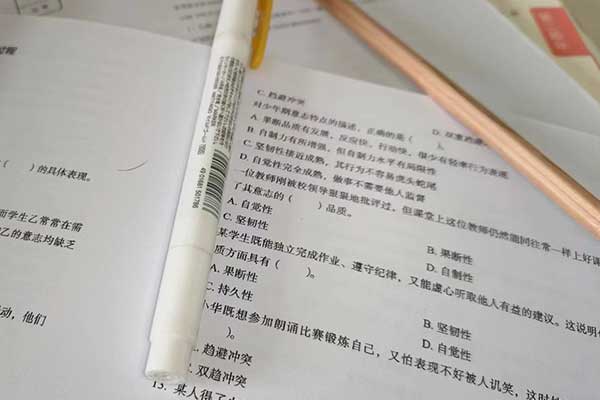 （　）的具体表现。
而学生乙常常在需
乙的意志均缺乏
动，他们
C. 趋避冲突
对少年期意志特点的描述，正确的是（　）。
A. 果断品质有发展，反应快、行动快，很少有轻率行为表现
B. 自制力有所增强，但自制力水平有局限性
C. 坚韧性接近成熟，其行为不容易虎头蛇尾
D. 自觉性完全成熟，做事不需要他人监督
一位教师刚被校领导狠狠地批评过，但课堂上这位教师仍然能同往常一样上好课
了其意志的（　）品质。
A. 自觉性
B. 果断性
C. 坚韧性
D. 自制性
某学生既能独立完成作业、遵守纪律，又能虚心听取他人有益的建议。这说明
质方面具有（　）。
A. 果断性
B. 坚韧性
C. 持久性
D. 自觉性
小华既想参加朗诵比赛锻炼自己，又怕表现不好被人讥笑，这时
）。
趋避冲突
双趋冲突
13. 某人得了